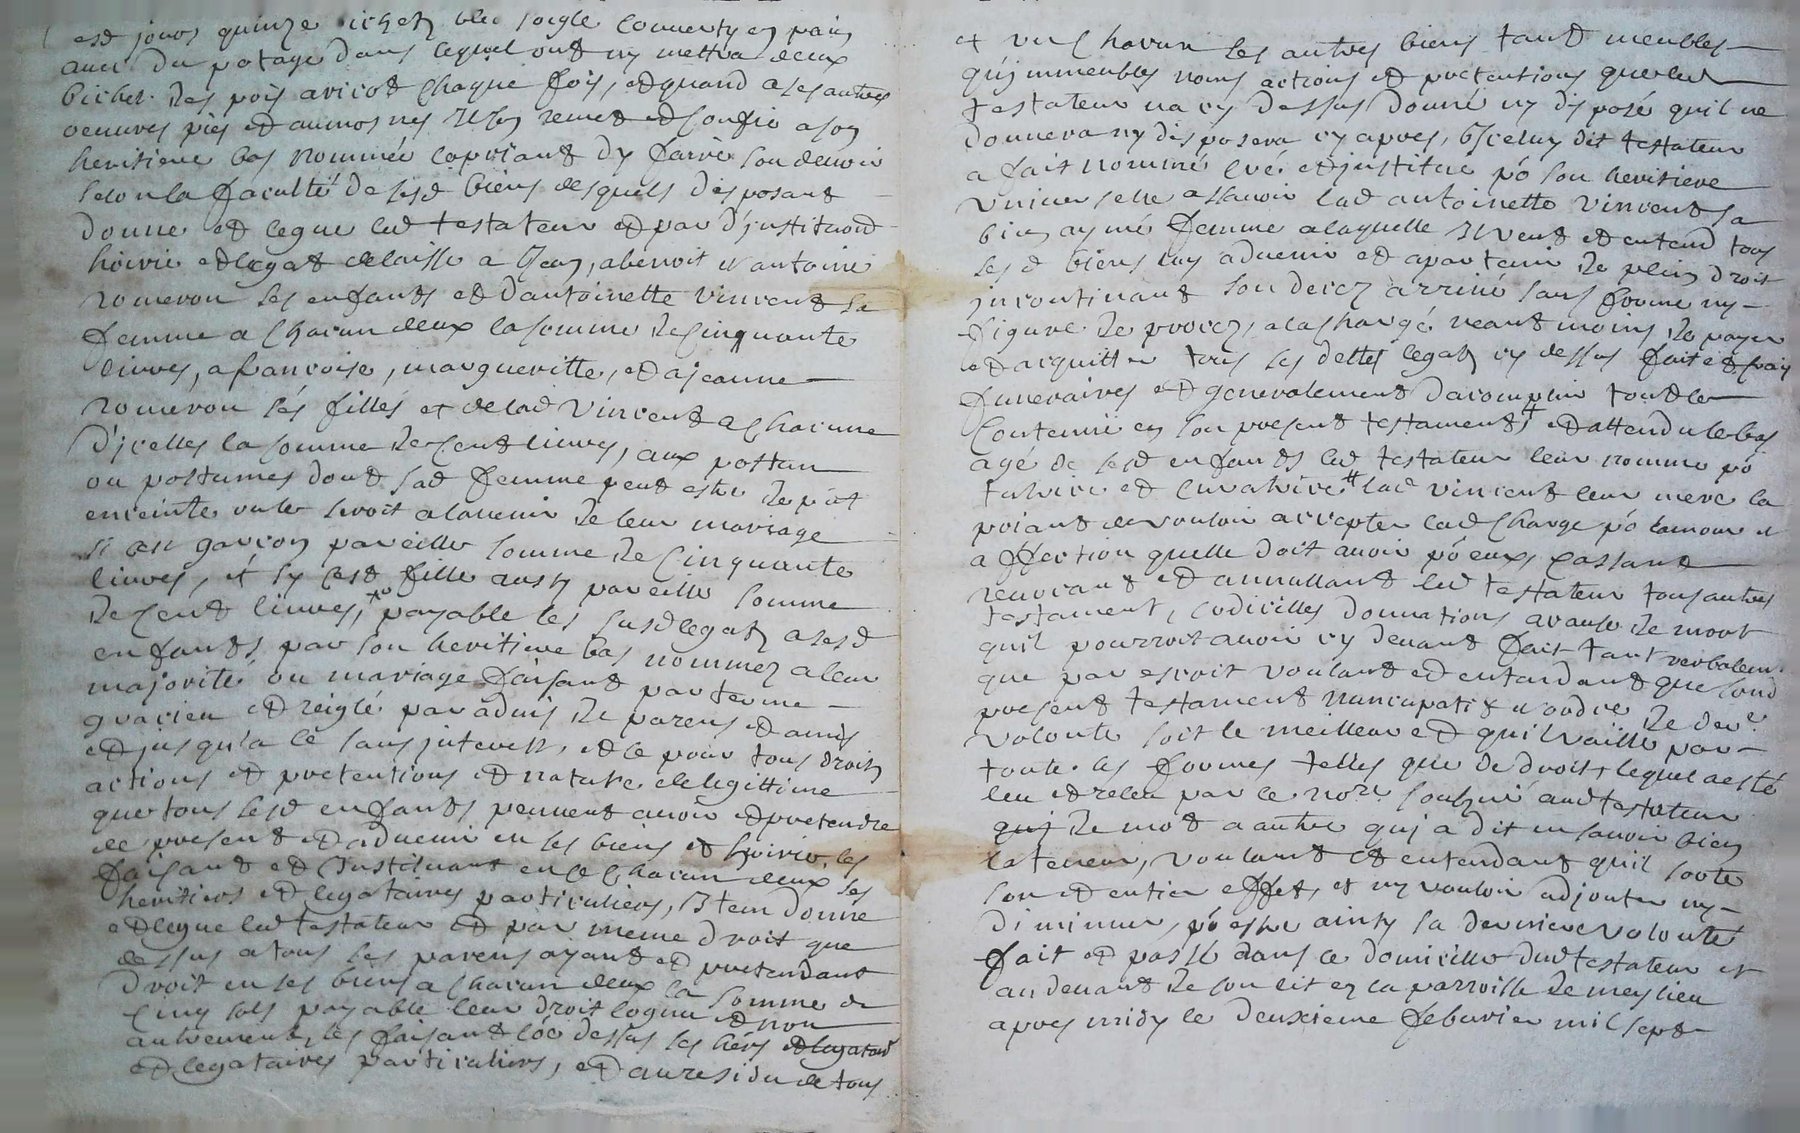 esd jours quinze bichetz bled soigle convertyes en pain
avec du potage dans lequel ont ny mettra deux
bichet des pois aricot chaque fois, et quand a ses autres
oeuvres pies et aumosnes il sen remet et confie a son
heritiere bas nommée la priant dy faire son devoir
selon la faculté de sesd biens desquels disposant
donne et legue led testateur et par d'justitution
hoirie et legat delaisse a Jean, a benoit et antoine
romeron ses enfants et d'antoinette vincent sa
femme a chacun deux la somme de cinquante
livres, a francoise, margueritte, et a jeanne
romeron ses filles et de lad vincent a chacune
d'jcelles la somme de cent livres, aux postun
ou postumes dont sad femme peut estre de pñt
enceinte ou le seroit a lavenir de leur mariage
si cest garcon pareille somme de cinquante
livres, et sy cest fille aussy pareille somme
de cent livres, payable les susd legatz a sesd
enfants par son heritiere bas nommez a leur
majorité ou mariage faisant par terme
gracieu et reiglé par advis de parens et amis
et jusqu'a ce sans jnterest, et ce pour tous droits
actions et pretentions et nature de legittime
que tous sesd enfants peuvent avoir et pretendre
de present et advenir en ses biens et hoirie, les
faisant et jnstituant en ce chacun deux ses
heritiers et legataires particuliers, Jtem donne
et legue led testateur et par meme droit que
dessus a tous ses parens ayant et pretendant
droit en ses biens a chacun deux la somme de
cinq sols payable leur droit cognu et non
autrement, les faisant côe dessus ses hers et legatai
et legataires particuliers, et au residu de tous
et un chacun ses autres biens tant meubles
qu'jmmeubles noms actions et pretentions que led
testateur na cy dessus donné ny disposé quil ne
donnera ny disposera cy apres, jceluy dit testateur
a fait nommé creé et jnstitué pô son heritiere
universelle assavoir lad antoinette vincent sa
bien aymé femme a laquelle il veut et entend tous
sesd biens luy advenir et apartenir de plein droit
jncontinant son decez arrivé sans forme ny
figure de procez, a la charge neantmoins de payer
et dacquitter tous ses dettes legatz cy dessus fait et frais
funeraires et generalement dacomplir tout le
contenu en son present testament et attendu le bas
agé de sesd enfants led testateur leur nomme pô
tutrice et curatrice lad vincent leur mere la
priant de vouloir accepter lad charge pô lamour et
affection quelle doit avoir pô eux, cassant
revocant et annullant led testateur tous autres
testament, codicilles donnations a cause de mort
quil pourroit avoir cy devant fait tant verbalemt
que par escrit voulant et entendant que sond
present testament nuncupatif et ordre de derre
volonte soit le meilleur et quil vaille par
toute les formes telles que de droit, lequel a esté
leu et releu par le nore soubzné aud testateur
quj de mot a autre quj a dit en savoir bien
la teneur, voulant et entendant quil sorte
son et entier effet, et ny vouloir adjouter ny
diminuer, pô estre ainsy sa derniere volonté
fait et passé dans le domicille dud testateur et
au devant de son lit en la parroisse de meylieu
apres midy le deuxieme febvrier mil sept